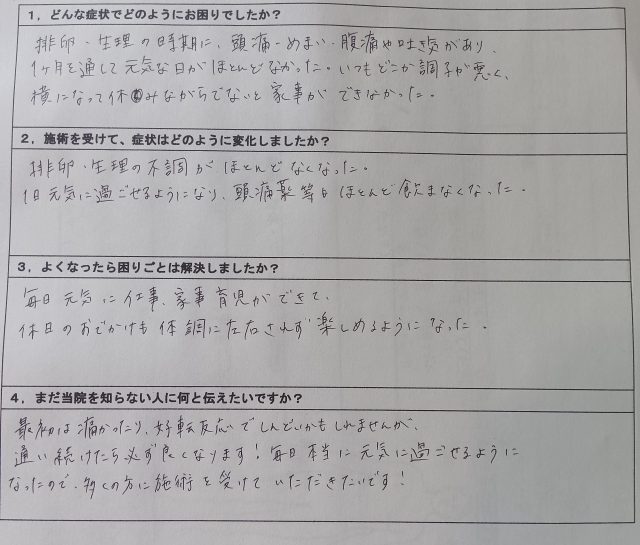 1，どんな症状でどのようにお困りでしたか？
排卵・生理の時期に、頭痛・めまい・腹痛や吐き気があり、
1ヶ月を通して元気な日がほとんどなかった。いつもどこか調子が悪く、
横になって休みながらでないと家事ができなかった。
2，施術を受けて、症状はどのように変化しましたか？
排卵・生理の不調がほとんどなくなった。
1日元気に過ごせるようになり、頭痛薬等もほとんど飲まなくなった。
3，よくなったら困りごとは解決しましたか？
毎日元気に仕事、家事育児ができて、
休日のおでかけも体調に左右されず楽しめるようになった。
4，まだ当院を知らない人に何と伝えたいですか？
最初は痛かったり、好転反応でしんどいかもしれませんが、
通い続けたら必ず良くなります！毎日本当に元気に過ごせるように
なったので、多くの方に施術を受けていただきたいです！